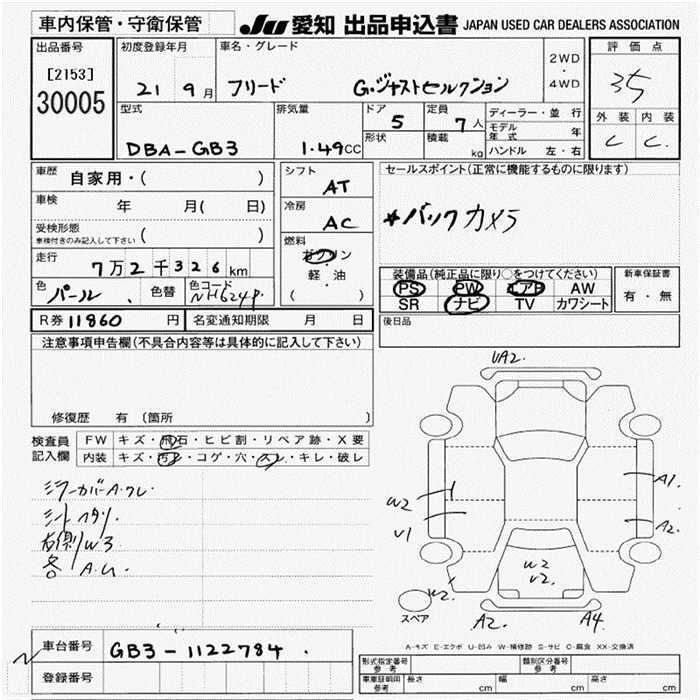 車内保管・守衛保管 JU 愛知 出品申込書 JAPAN USED CAR DEALERS ASSOCIATION
出品番号 初度登録年月 車名・グレード 2WD・4WD 評価点
[2153] 21 9月 フリード G・ジャストセレクション 35
30005
型式 排気量 ドア 定員 ディーラー・並行 外装 内装
DBA-GB3 1.49CC 5 7人 モデル年式 年 C C
形状 積載 kg ハンドル 左・右
車歴 自家用・( ) シフト AT セールスポイント(正常に機能するものに限ります)
車検 年 月( 日) 冷房 AC *バックカメラ
受検形態 ( )
車検付きのみ記入して下さい
燃料 ガソリン・軽・油 ( )
走行 7万2千326km
装備品(純正品に限り○をつけてください) 新車保証書
PS PW エアB AW 有・無
SR ナビ TV カワシート
色 パール 色替 色コード NH624P
R券 11860 円 名変通知期限 月 日 後日品
注意事項申告欄(不具合内容等は具体的に記入して下さい)
修復歴 有 〔箇所
検査員記入欄 FW キズ・飛石・ヒビ割・リペア跡・X要
内装 キズ・汚レ・コゲ・穴・スレ・キレ・破レ
ミラーカバーA.ワレ
シートヘタリ
右側W3
各A.U
UA2
W2
U1
A1
A2
W2
U2
W2
スペア A2 A4
A-キズ E-エクボ U-凹み W-補修跡 S-サビ C-腐食 XX-交換済
車台番号 GB3-1122784
登録番号
型式指定番号 参考 類別区分番号 参考
車庫証明用 参考 長さ cm 幅 cm 高さ cm